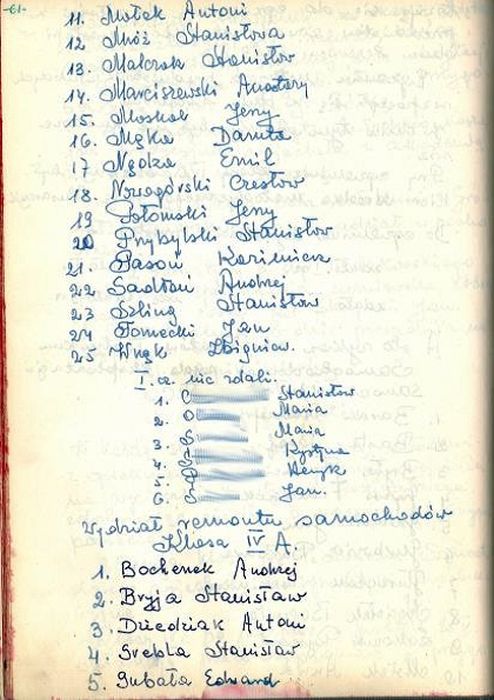 -61-
11. Mołek Antoni
12 Móż Stanisłowa
13. Malczak Stanisłov
14. Marciszewski Anastazy
15. Moskal Jerzy
16. Męka Danuta
17 Nędza Emil
18. Nowogórski Czesłow
19 Połomski Jerzy
20 Przybylski Stanisłow
21. Pasoń Kazimierz
22 Sadłoń Andrzej
23 Szling Stanisłow
24 Tomecki Jan
25 Wnęk Zbigniew.
I. oz. nie zdali.
1. Stanisłow
2. Maria
3. Maria
4. Krystyna
5. Henryk
6. Jan.
Wydział remontu samochodów
Klasa IV A.
1. Bochenek Andrzej
2. Bryja Stanisław
3. Dziedziak Antoni
4. Grebla Stanisław
5. Gubała Edward